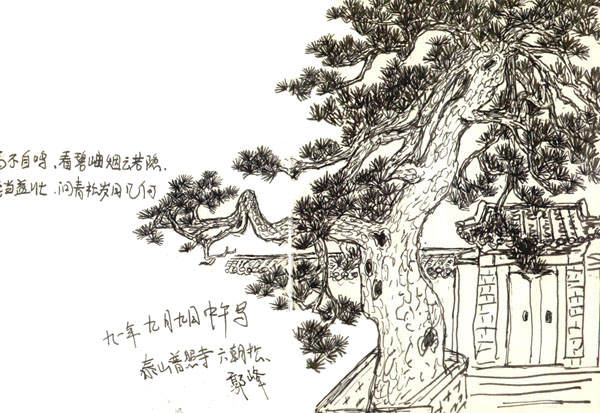 不自鸣.看碧岫烟云若隐.
当益壮.问青松岁月几何
九一年九月九日中午写
泰山普照寺六朝松
郭峰